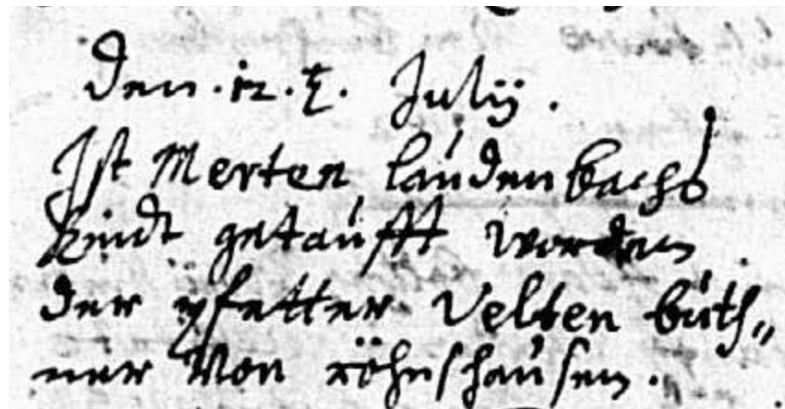 den . 12 . t. July .
Ist Merten laudenbachs
kindt getaufft worden
der pfetter Velten büth„
ner Von röhnshausen .